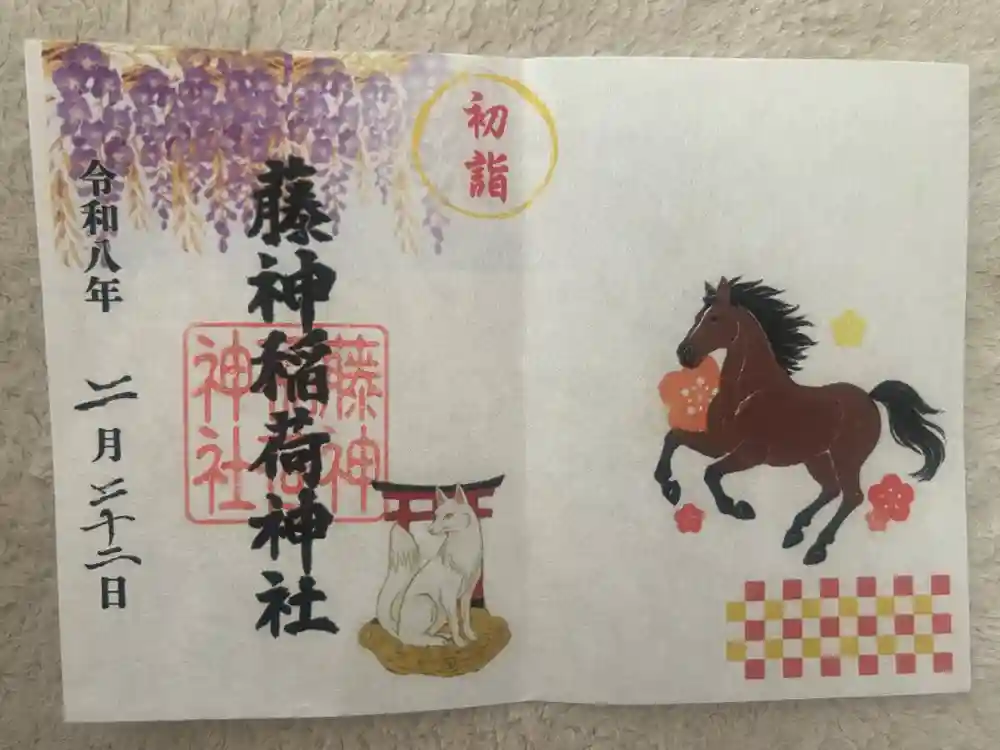 初詣
藤神稲荷神社
藤神
神社
令和八年 二月二十二日